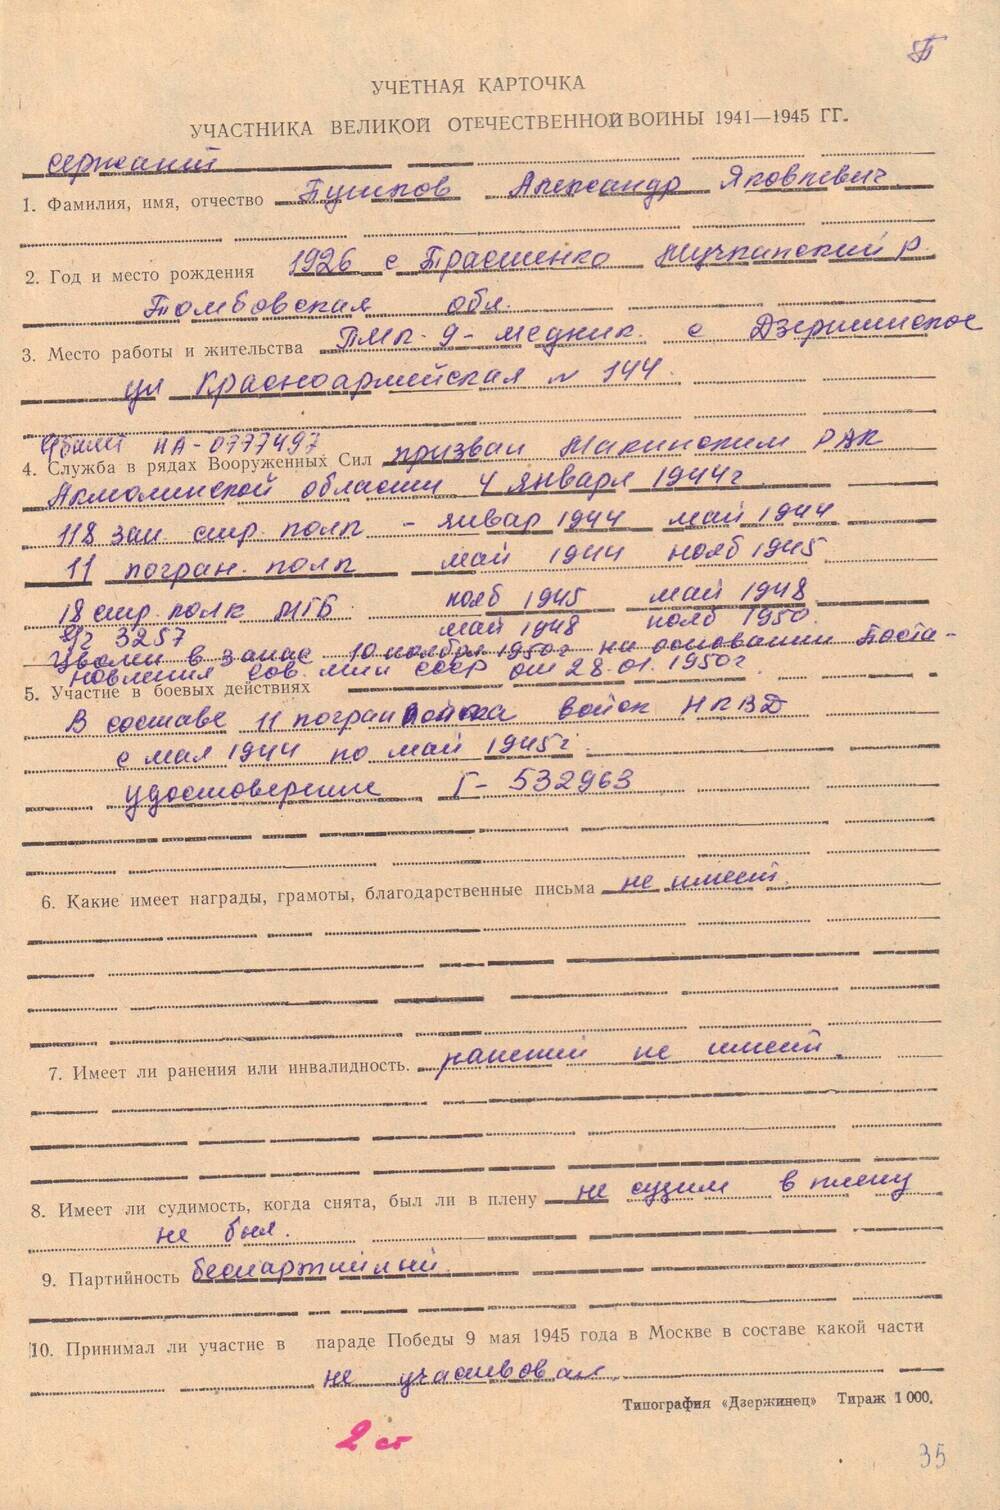 УЧЕТНАЯ КАРТОЧКА
УЧАСТНИКА ВЕЛИКОЙ ОТЕЧЕСТВЕННОЙ ВОЙНЫ 1941—1945 ГГ.
сержант
1. Фамилия, имя, отчество Пушков Александр Яковлевич
2. Год и место рождения 1926 с Мучкапский р.
Томбовская обл.
3. Место работы и жительства ПМК-9-медник. с Дзержинское
ул Красноармейская № 144.
НА-0777497
4. Служба в рядах Вооруженных Сил призван Макинским РВК
Акмолинской области 4 января 1944г
118 зап. стр. полк - январ 1944 май 1944
11 погран. полк май 1944 нояб 1945
18 стр. полк МГБ нояб 1945 май 1948
в/ч 3257 май 1948 нояб 1950.
Уволен в запас 10 ноября 1950г на основании Поста-
новления Сов. мин СССР от 28.01.1950г.
5. Участие в боевых действиях
В составе 11 погран полка войск НКВД
с мая 1944 по май 1945г.
удостоверение Г- 532963
6. Какие имеет награды, грамоты, благодарственные письма не имеет.
7. Имеет ли ранения или инвалидность. ранений не имеет.
8. Имеет ли судимость, когда снята, был ли в плену не судим в плену
не был.
9. Партийность беспартийный.
10. Принимал ли участие в параде Победы 9 мая 1945 года в Москве в составе какой части
не участвовал.
Типография «Дзержинец» Тираж 1 000.
2 ст
35